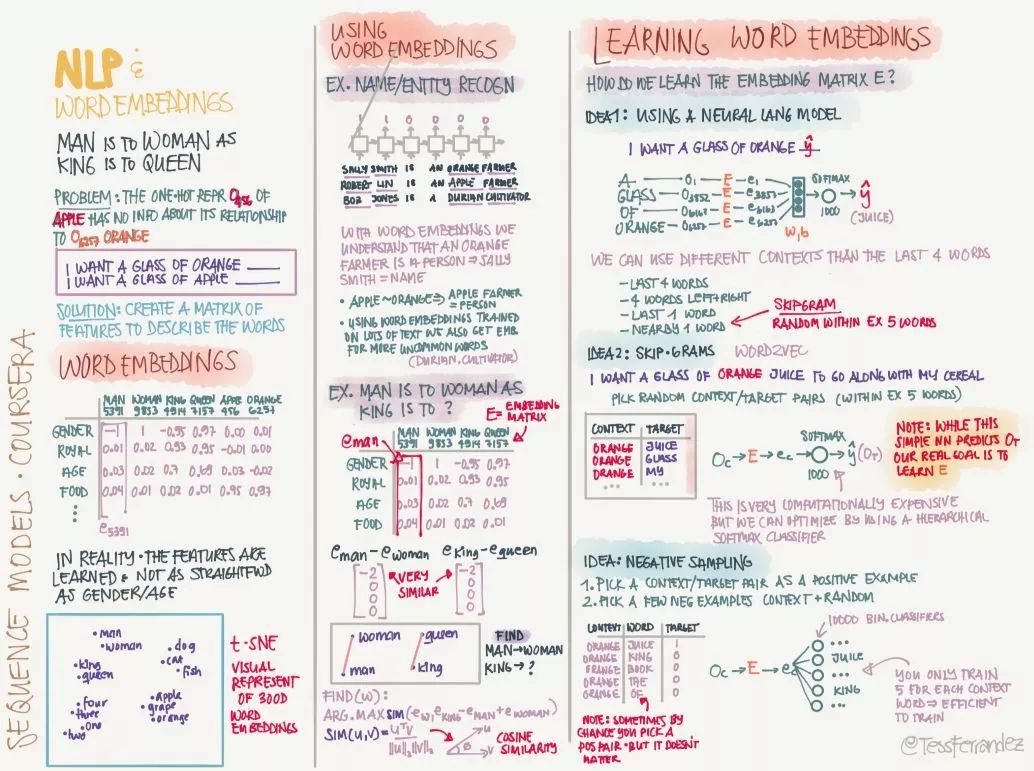 SEQUENCE MODELS · COURSERA
NLP &
WORD EMBEDDINGS
MAN IS TO WOMAN AS
KING IS TO QUEEN
PROBLEM: THE ONE-HOT REPR O456 OF
APPLE HAS NO INFO ABOUT ITS RELATIONSHIP
TO O6257 ORANGE
I WANT A GLASS OF ORANGE ____
I WANT A GLASS OF APPLE ____
SOLUTION: CREATE A MATRIX OF
FEATURES TO DESCRIBE THE WORDS
WORD EMBEDDINGS
MAN WOMAN KING QUEEN APPLE ORANGE
5391 9853 4914 7157 456 6257
GENDER -1 1 -0.95 0.97 0.00 0.01
ROYAL 0.01 0.02 0.93 0.95 -0.01 0.00
AGE 0.03 0.02 0.7 0.69 0.03 -0.02
FOOD 0.04 0.01 0.02 0.01 0.95 0.97
e5391
IN REALITY · THE FEATURES ARE
LEARNED & NOT AS STRAIGHTFWD
AS GENDER/AGE
man
woman
dog
cat
fish
king
queen
four
three
one
two
apple
grape
orange
t-SNE
VISUAL
REPRESENT
OF 300D
WORD
EMBEDDINGS
USING
WORD EMBEDDINGS
EX. NAME/ENTITY RECOGN
1 1 0 0 0 0
SALLY SMITH IS AN ORANGE FARMER
ROBERT LIN IS AN APPLE FARMER
BOB JONES IS A DURIAN CULTIVATOR
WITH WORD EMBEDDINGS WE
UNDERSTAND THAT AN ORANGE
FARMER IS A PERSON ⇒ SALLY
SMITH = NAME
• APPLE ~ ORANGE ⇒ APPLE FARMER
= PERSON
• USING WORD EMBEDDINGS TRAINED
ON LOTS OF TEXT WE ALSO GET EMB.
FOR MORE UNCOMMON WORDS
(DURIAN, CULTIVATOR)
EX. MAN IS TO WOMAN AS
KING IS TO ?
E = EMBEDDING
MATRIX
eman
MAN WOMAN KING QUEEN
5391 9853 4914 7157
GENDER -1 1 -0.95 0.97
ROYAL 0.01 0.02 0.93 0.95
AGE 0.03 0.02 0.7 0.69
FOOD 0.04 0.01 0.02 0.01
eman - ewoman eking - equeen
-2 -2
0 0
0 0
0 0
VERY
SIMILAR
woman
queen
man
king
FIND
MAN → WOMAN
KING → ?
FIND(W):
ARG.MAX SIM(ew, eking - eman + ewoman)
SIM(U,V) = UᵀV / ||U||₂||V||₂
u
ø
v
COSINE
SIMILARITY
LEARNING WORD EMBEDDINGS
HOW DO WE LEARN THE EMBEDDING MATRIX E?
IDEA1: USING A NEURAL LANG MODEL
I WANT A GLASS OF ORANGE ŷ
A O1 E e1
GLASS O3852 E e3852
OF O6163 E e6163
ORANGE O6257 E e6257
W,b
SOFTMAX
1000
ŷ
(JUICE)
WE CAN USE DIFFERENT CONTEXTS THAN THE LAST 4 WORDS
- LAST 4 WORDS
- 4 WORDS LEFT+RIGHT
- LAST 1 WORD
- NEARBY 1 WORD
SKIPGRAM
RANDOM WITHIN EX 5 WORDS
IDEA2: SKIP-GRAMS WORD2VEC
I WANT A GLASS OF ORANGE JUICE TO GO ALONG WITH MY CEREAL
PICK RANDOM CONTEXT/TARGET PAIRS (WITHIN EX 5 WORDS)
CONTEXT TARGET
ORANGE JUICE
ORANGE GLASS
ORANGE MY
...
Oc → E → ec → ŷ (OT)
SOFTMAX
1000
NOTE: WHILE THIS
SIMPLE NN PREDICTS OT
OUR REAL GOAL IS TO
LEARN E
THIS IS VERY COMPUTATIONALLY EXPENSIVE
BUT WE CAN OPTIMIZE BY USING A HIERARCHICAL
SOFTMAX CLASSIFIER
IDEA: NEGATIVE SAMPLING
1. PICK A CONTEXT/TARGET PAIR AS A POSITIVE EXAMPLE
2. PICK A FEW NEG EXAMPLES CONTEXT + RANDOM
CONTEXT WORD TARGET
ORANGE JUICE 1
ORANGE KING 0
ORANGE BOOK 0
ORANGE THE 0
ORANGE OF 0
NOTE: SOMETIMES BY
CHANCE YOU PICK A
POS PAIR · BUT IT DOESN'T
MATTER
Oc → E → ec
10000 BIN. CLASSIFIERS
...
JUICE
...
KING
...
YOU ONLY TRAIN
5 FOR EACH CONTEXT
WORD ⇒ EFFICIENT
TO TRAIN
@TessFerrandez